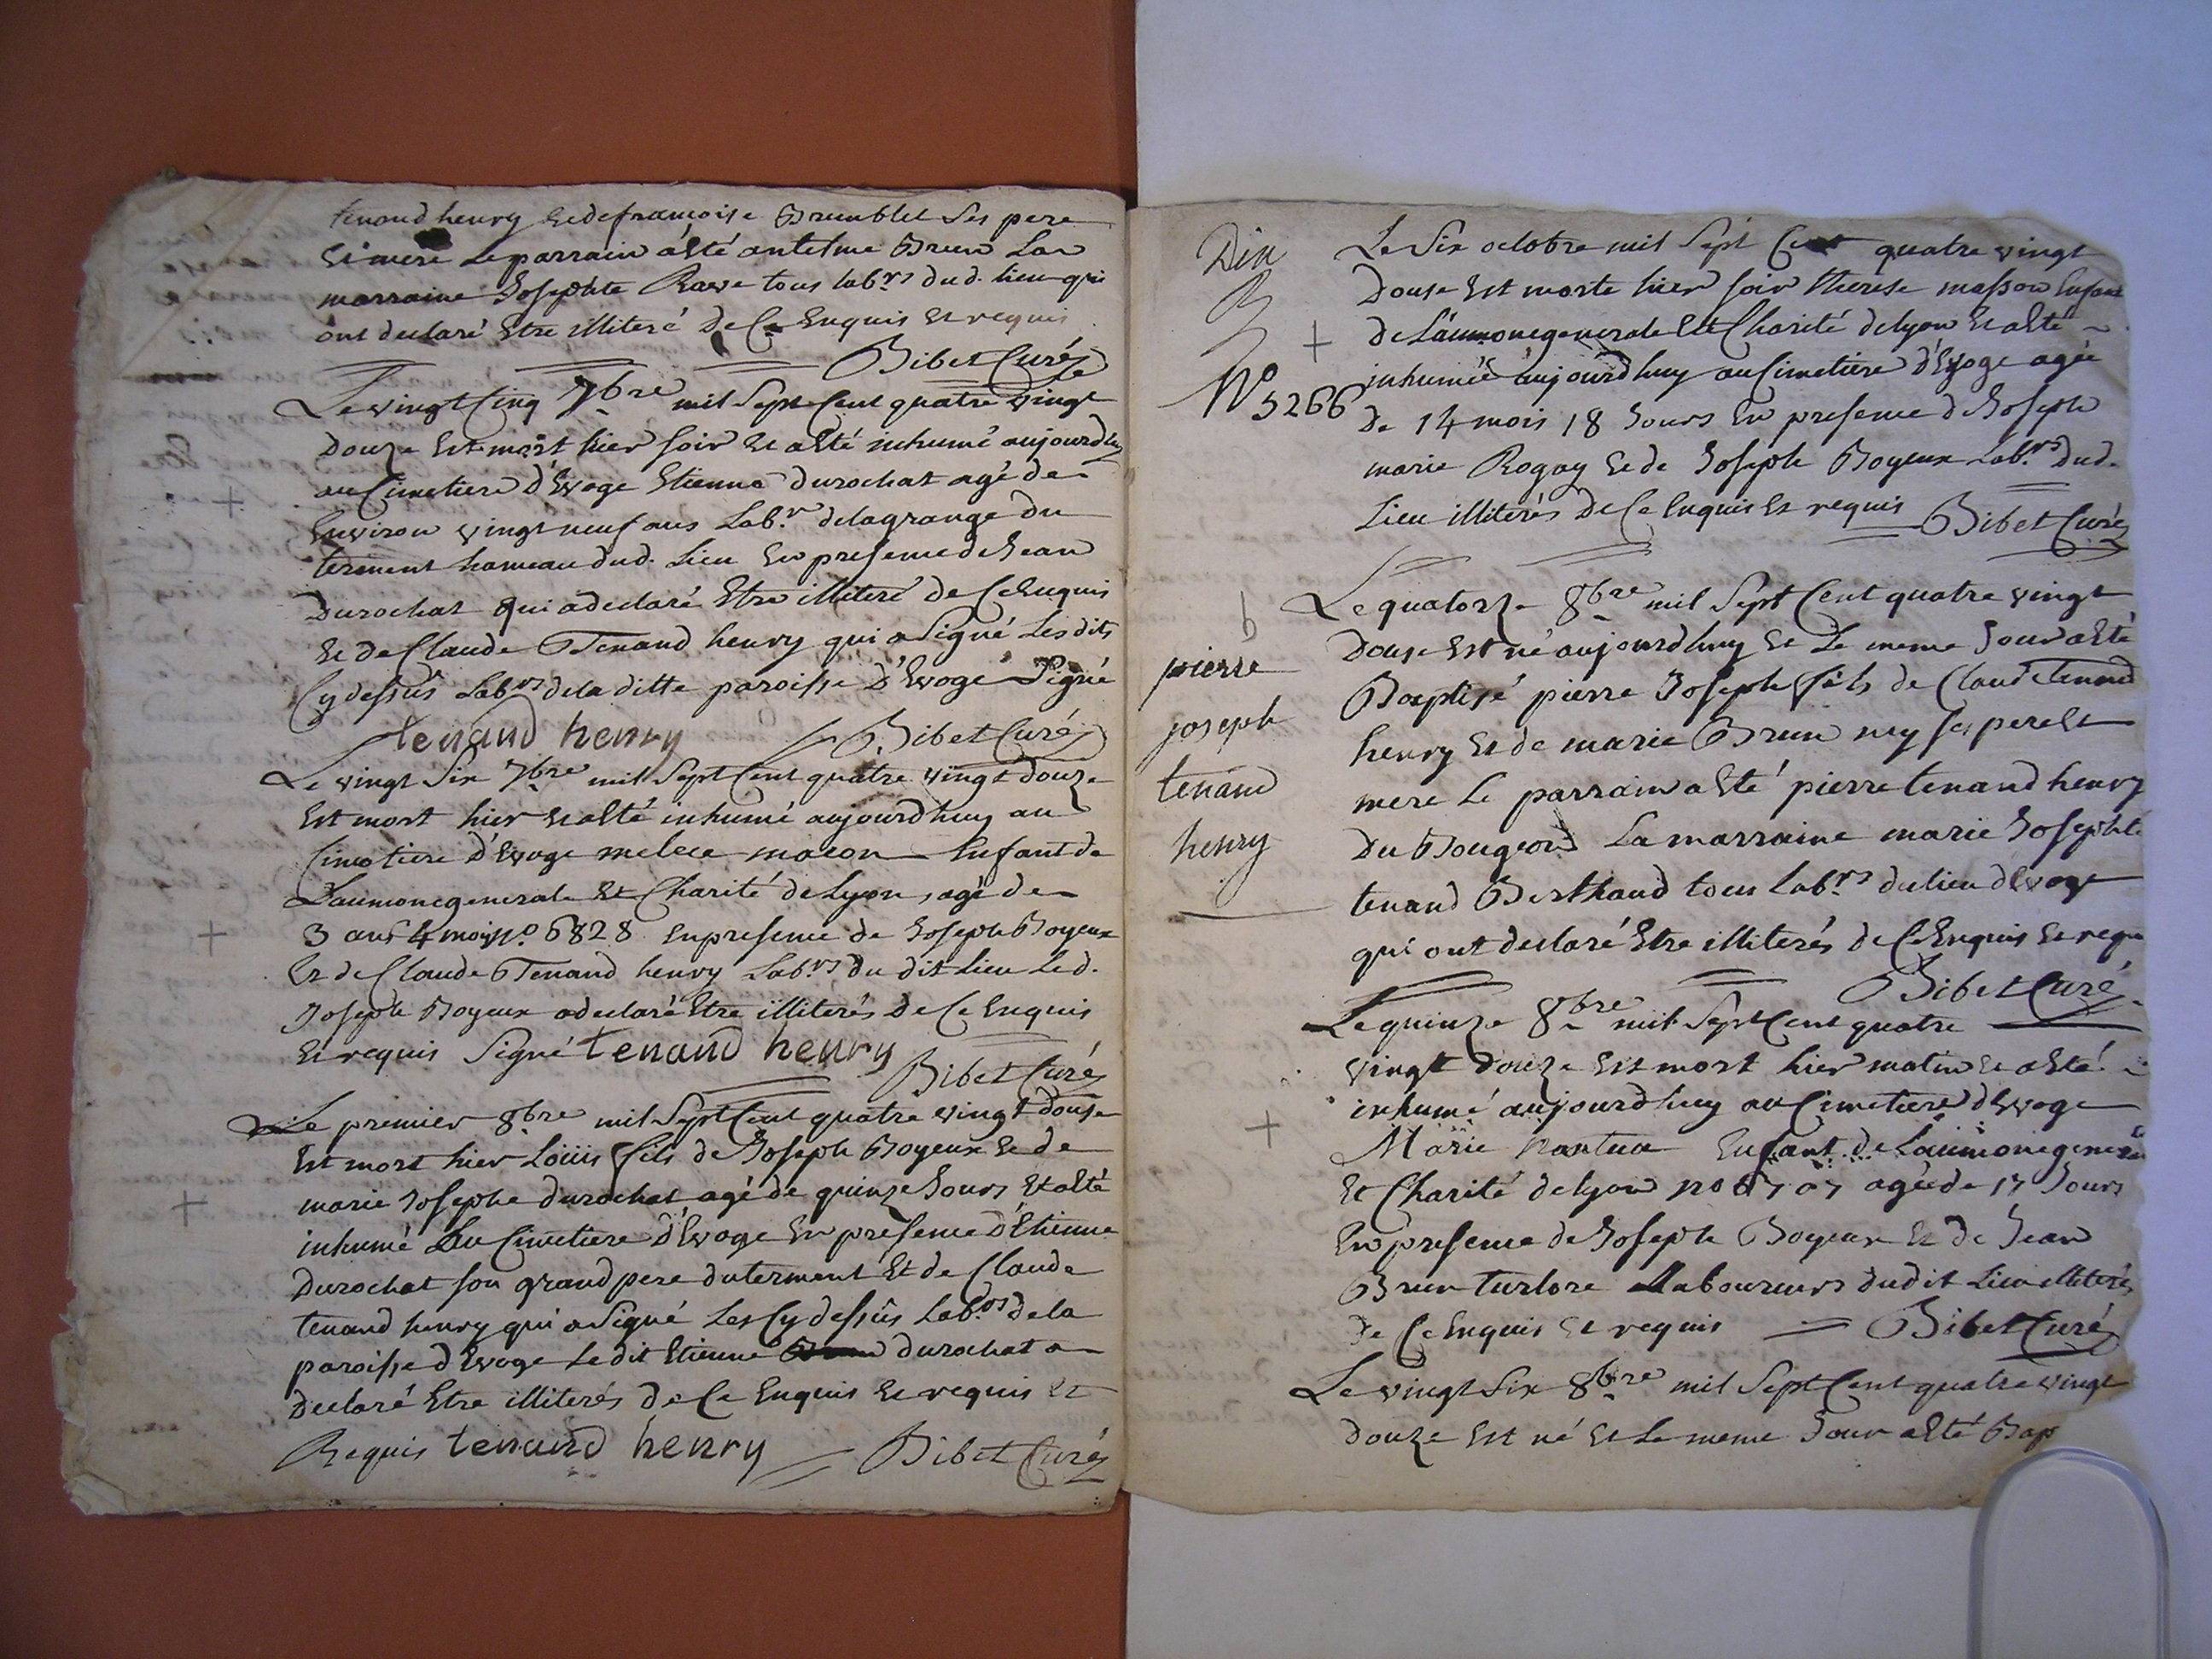 tenand henry et de françoise Brunblet Ses pere
et mere Le parrain a été antelme Brun La
marraine Josephte Rave tous labrs dud. lieu qui
ont declaré Etre illiteré de Ce Enquis et requis
Bibet Curé
Le vingt Cinq 7bre mil Sept Cent quatre vingt
Douze Est mort hier soir et a Eté inhumé aujourdhuy
au Cimetiere d'Evoge Etienne Durochat agé de
Environ vingt neuf ans Labr delagrange du
terment hameau dud. Lieu En presence de Jean
Durochat qui a declaré Etre illiteré de Ce Enquis
et de Claude Tenand henry qui a Signé Les dits
Cy dessus Labrs de la ditte paroisse D'Evoge Signé
tenand henry Bibet Curé
Le vingt Six 7bre mil Sept Cent quatre vingt douze
Est mort hier et a Eté inhumé aujourdhuy au
Cimetiere D'Evoge macon Enfant de
Laumonegenerale Et Charité de Lyon, agé de
3 ans 4 mois no 6828 en presence de Joseph Boyeux
Et de Claude Tenand henry Labrs du dit Lieu Led.
Joseph Boyeux a declaré Etre illiterés de Ce Enquis
Et requis Signé tenand henry
Bibet Curé
Le premier 8bre mil Sept Cent quatre vingt douze
Est mort hier Loüis fils de Joseph Boyeux et de
marie Josephe durochat agé de quinze Jours Et a Eté
inhumé Au Cimetiere d'Evoge En presence d'Etienne
Durochat son grand pere duterment Et de Claude
tenand henry qui a Signé Les Cy dessus Labrs de la
paroisse d'Evoge Le dit Etienne durochat a
declaré Etre illiterés de Ce Enquis et requis Et
Requis tenand henry Bibet Curé
Dix
No 5266
Le Six octobre mil Sept Cent quatre vingt
Douze Est morte hier soir therese masson Enfant
de L'aumonegenerale Et Charité de lyon et a Eté
inhumée aujourdhuy au Cimetiere d'Evoge agée
de 14 mois 18 Jours En presence de Joseph
marie Rogay et de Joseph Boyeux Labrs dud.
Lieu illiterés de Ce Enquis Et requis Bibet Curé
b
pierre
joseph
tenand
henry
Le quatorze 8bre mil Sept Cent quatre vingt
Douze Est né aujourdhuy et Le meme Jour a Eté
Baptisé pierre Joseph fils de Claude tenand
henry Et de marie Brun ney ses pere Et
mere Le parrain a Eté pierre tenand henry
Du Bougeon La marraine marie Josephte
tenand Berthaud tous Labrs du lieu d'Evoge
qui ont declaré Etre illiterés de Ce Enquis Et requi
Bibet Curé
Le quinze 8bre mil Sept Cent quatre
vingt douze Est mort hier matin et a Eté
inhumé aujourdhuy au Cimetiere d'Evoge
Marie nantua Enfant de Laumonegenerale
Et Charité de lyon no 6707 agée de 17 Jours
En presence de Joseph Boyeux Et de Jean
Brun turlore Laboureurs dudit Lieu illiterés
de Ce Enquis Et requis Bibet Curé
Le vingt Six 8bre mil Sept Cent quatre vingt
douze Est né Et Le meme Jour a Eté Bap